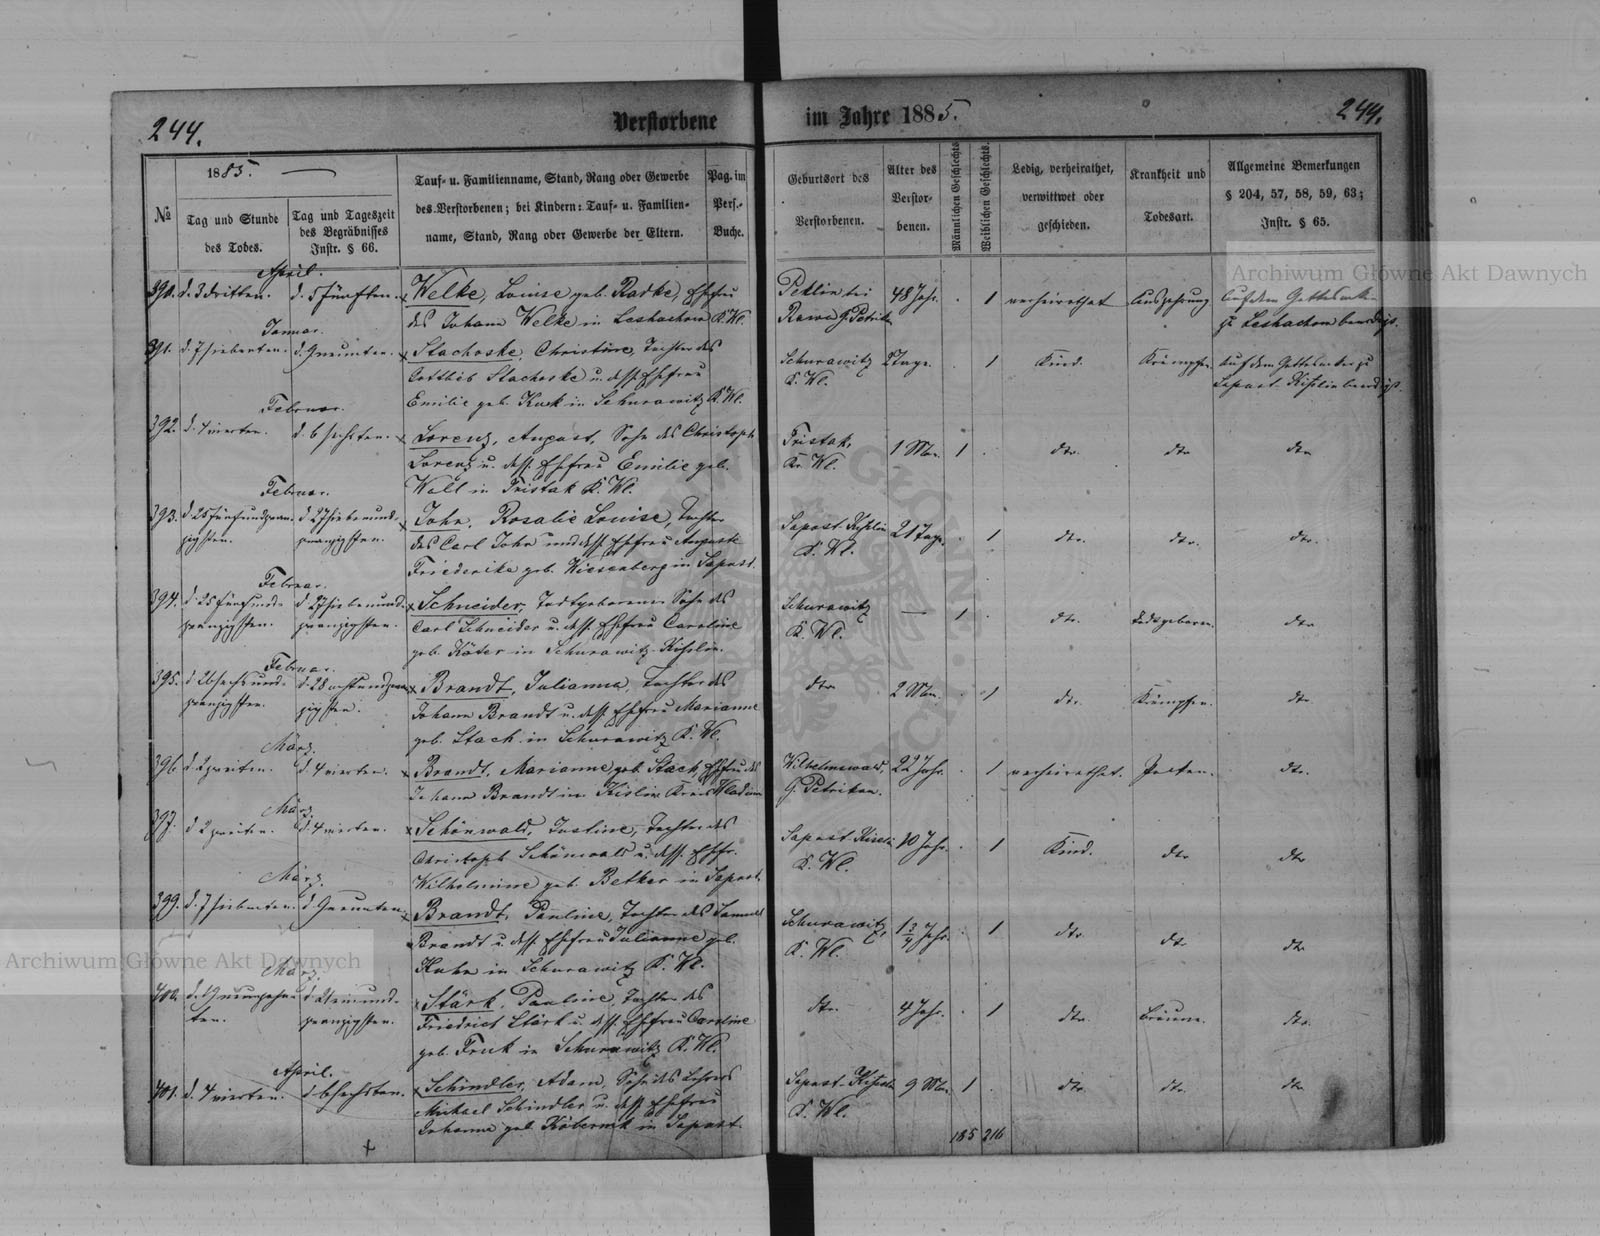 244.
Verstorbene
im Jahre 1885.
244.
№
1885.
Tag und Stunde
des Todes.
Tag und Tageszeit
des Begräbnisses
Instr. § 66.
Tauf- u. Familienname, Stand, Rang oder Gewerbe
des Verstorbenen; bei Kindern: Tauf- u. Familien-
name, Stand, Rang oder Gewerbe der Eltern.
Pag. im
Pers.-
Buche.
Geburtsort des
Verstorbenen.
Alter des
Verstor-
benen.
Männlichen Geschlechts.
Weiblichen Geschlechts.
Ledig, verheirathet,
verwittwet oder
geschieden.
Krankheit und
Todesart.
Allgemeine Bemerkungen
§ 204, 57, 58, 59, 63;
Instr. § 65.
April.
390. d. 3 dritten. d. 5 fünften. Welke, Louise geb. Radke, Ehefrau
des Johann Welke in Leshachow K. Wl.
48 Jahr. 1 verheirathet Auszehrung Auf dem Gottesacker
zu Leshachow beerdigt.
Januar.
391. d. 7 siebenten. d. 9 neunten. Stachoske, Christine, Tochter des
Gottlieb Stachoske u. dess. Ehefrau
Emilie geb. Kuck in Schurawitz K. Wl.
Schurawitz
K. Wl.
2 Tage. 1 Kind. Krämpfe. Auf dem Gottesacker zu
Sapust Kislin beerdigt
Februar.
392. d. 4 vierten. d. 6 sechsten. Lorenz, August, Sohn des Christoph
Lorenz u. dess. Ehefrau Emilie geb.
Woll in Tristak K. Wl.
Tristak,
Kr. Wl.
1 Mon. 1 dto. dto dto
Februar.
393. d. 25 fünfundzwan-
zigsten. d. 27 siebenund-
zwanzigsten.
John, Rosalie Louise, Tochter
des Carl John und dess. Ehefrau Auguste
Friederike geb. Wiesenberg in Sapust.
Sapust-Kislin
K. Wl.
21 Tage. 1 dto. dto. dto.
Februar.
394. d. 25 fünfund-
zwanzigsten. d. 27 siebenund-
zwanzigsten.
Schneider, Todtgeborener Sohn des
Carl Schneider u. dess. Ehefrau Caroline
geb. Köter in Schurawitz-Kislin.
Schurawitz
K. Wl.
— 1 dto. Todtgeboren. dto
Februar.
395. d. 26 sechsund-
zwanzigsten. d. 28 achtundzwan-
zigsten.
Brandt, Julianna, Tochter des
Johann Brandt u. dess. Ehefrau Marianne
geb. Stach in Schurawitz K. Wl.
dto 2 Mon. 1 dto. Krämpfen. dto
März.
396. d. 2 zweiten. d. 4 vierten. Brandt, Marianne geb. Stach, Ehefrau des
Johann Brandt in Kislin Kreis Wladimir
Wilhelmswald,
G. Petrikau.
22 Jahr. 1 verheirathet. Pocken. dto.
März.
397. d. 2 zweiten. d. 4 vierten. Schönwald, Justine, Tochter des
Christoph Schönwald u. dess. Ehefr.
Wilhelmine geb. Betker in Sapust.
K. Wl.
10 Jahr. 1 Kind. dto dto
März.
399. d. 7 siebenten. d. 9 neunten. Brandt, Pauline, Tochter des Samuel
Brandt u. dess. Ehefrau Julianne geb.
Kuhn in Schurawitz K. Wl.
Schurawitz,
K. Wl.
1 3/4 Jahr. 1 dto dto dto
März.
400. d. 19 neunzehn-
ten. d. 21 einund-
zwanzigsten.
Stärk, Pauline, Tochter des
Friedrich Stärk u. dess. Ehefrau Caroline
geb. Fruk in Schurawitz K. Wl.
dto. 4 Jahr. 1 dto. Bräune. dto.
April.
401. d. 4 vierten. d. 6 sechsten. Schindler, Adam, Sohn des Lehrers
Michael Schindler u. dess. Ehefrau
Johanna geb. Köbernik in Sapust.
K. Wl.
9 Mon. 1 dto. dto. dto
185 216
Archiwum Główne Akt Dawnych
Archiwum Główne Akt Dawnych